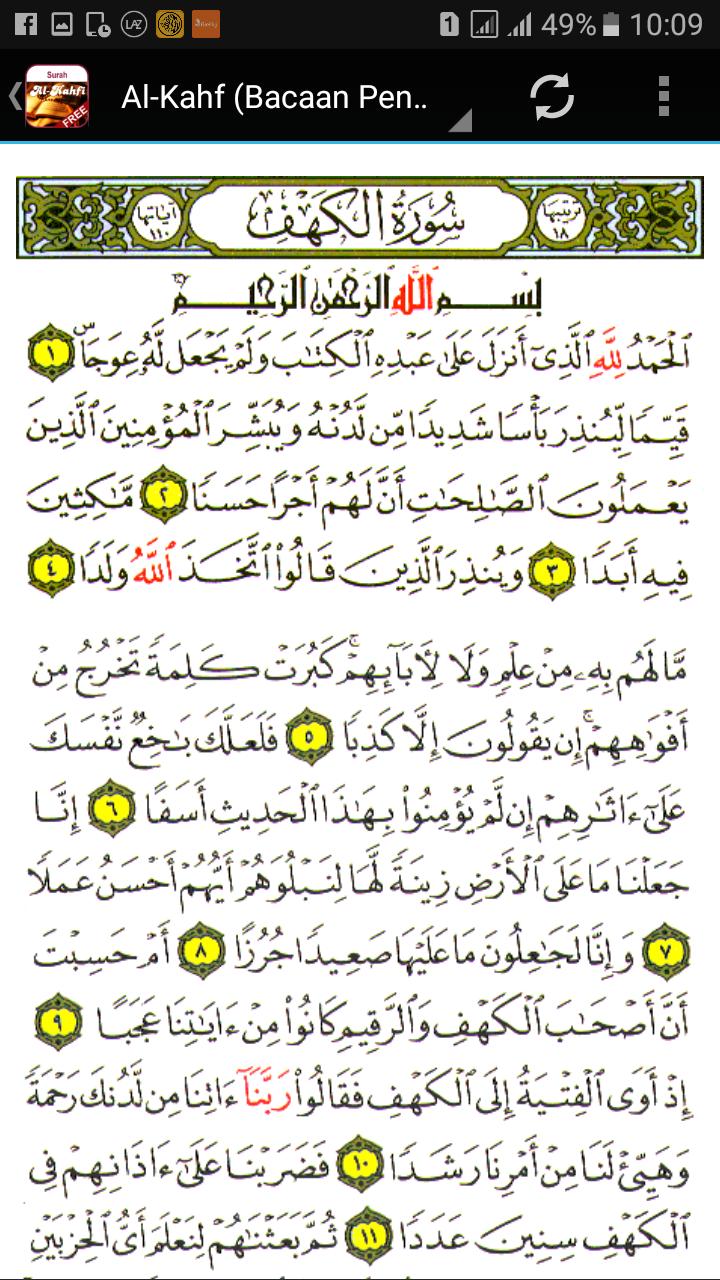 LAZ
1
49%
10:09
Surah
Al-Kahfi
FREE
Al-Kahf (Bacaan Pen..
ترتيبها ١٨
سُورَةُ الكَهْفِ
آياتها ١١٠
بِسْمِ ٱللَّهِ ٱلرَّحْمَٰنِ ٱلرَّحِيمِ
ٱلْحَمْدُ لِلَّهِ ٱلَّذِىٓ أَنزَلَ عَلَىٰ عَبْدِهِ ٱلْكِتَٰبَ وَلَمْ يَجْعَل لَّهُۥ عِوَجَاۜ ١
قَيِّمًا لِّيُنذِرَ بَأْسًا شَدِيدًا مِّن لَّدُنْهُ وَيُبَشِّرَ ٱلْمُؤْمِنِينَ ٱلَّذِينَ
يَعْمَلُونَ ٱلصَّٰلِحَٰتِ أَنَّ لَهُمْ أَجْرًا حَسَنًا ٢ مَّٰكِثِينَ
فِيهِ أَبَدًا ٣ وَيُنذِرَ ٱلَّذِينَ قَالُوا۟ ٱتَّخَذَ ٱللَّهُ وَلَدًا ٤
مَّا لَهُم بِهِۦ مِنْ عِلْمٍ وَلَا لِأَبَآئِهِمْ ۚ كَبُرَتْ كَلِمَةً تَخْرُجُ مِنْ
أَفْوَٰهِهِمْ ۚ إِن يَقُولُونَ إِلَّا كَذِبًا ٥ فَلَعَلَّكَ بَٰخِعٌ نَّفْسَكَ
عَلَىٰٓ ءَاثَٰرِهِمْ إِن لَّمْ يُؤْمِنُوا۟ بِهَٰذَا ٱلْحَدِيثِ أَسَفًا ٦ إِنَّا
جَعَلْنَا مَا عَلَى ٱلْأَرْضِ زِينَةً لَّهَا لِنَبْلُوَهُمْ أَيُّهُمْ أَحْسَنُ عَمَلًا
٧ وَإِنَّا لَجَٰعِلُونَ مَا عَلَيْهَا صَعِيدًا جُرُزًا ٨ أَمْ حَسِبْتَ
أَنَّ أَصْحَٰبَ ٱلْكَهْفِ وَٱلرَّقِيمِ كَانُوا۟ مِنْ ءَايَٰتِنَا عَجَبًا ٩
إِذْ أَوَى ٱلْفِتْيَةُ إِلَى ٱلْكَهْفِ فَقَالُوا۟ رَبَّنَآ ءَاتِنَا مِن لَّدُنكَ رَحْمَةً
وَهَيِّئْ لَنَا مِنْ أَمْرِنَا رَشَدًا ١٠ فَضَرَبْنَا عَلَىٰٓ ءَاذَانِهِمْ فِى
ٱلْكَهْفِ سِنِينَ عَدَدًا ١١ ثُمَّ بَعَثْنَٰهُمْ لِنَعْلَمَ أَىُّ ٱلْحِزْبَيْنِ